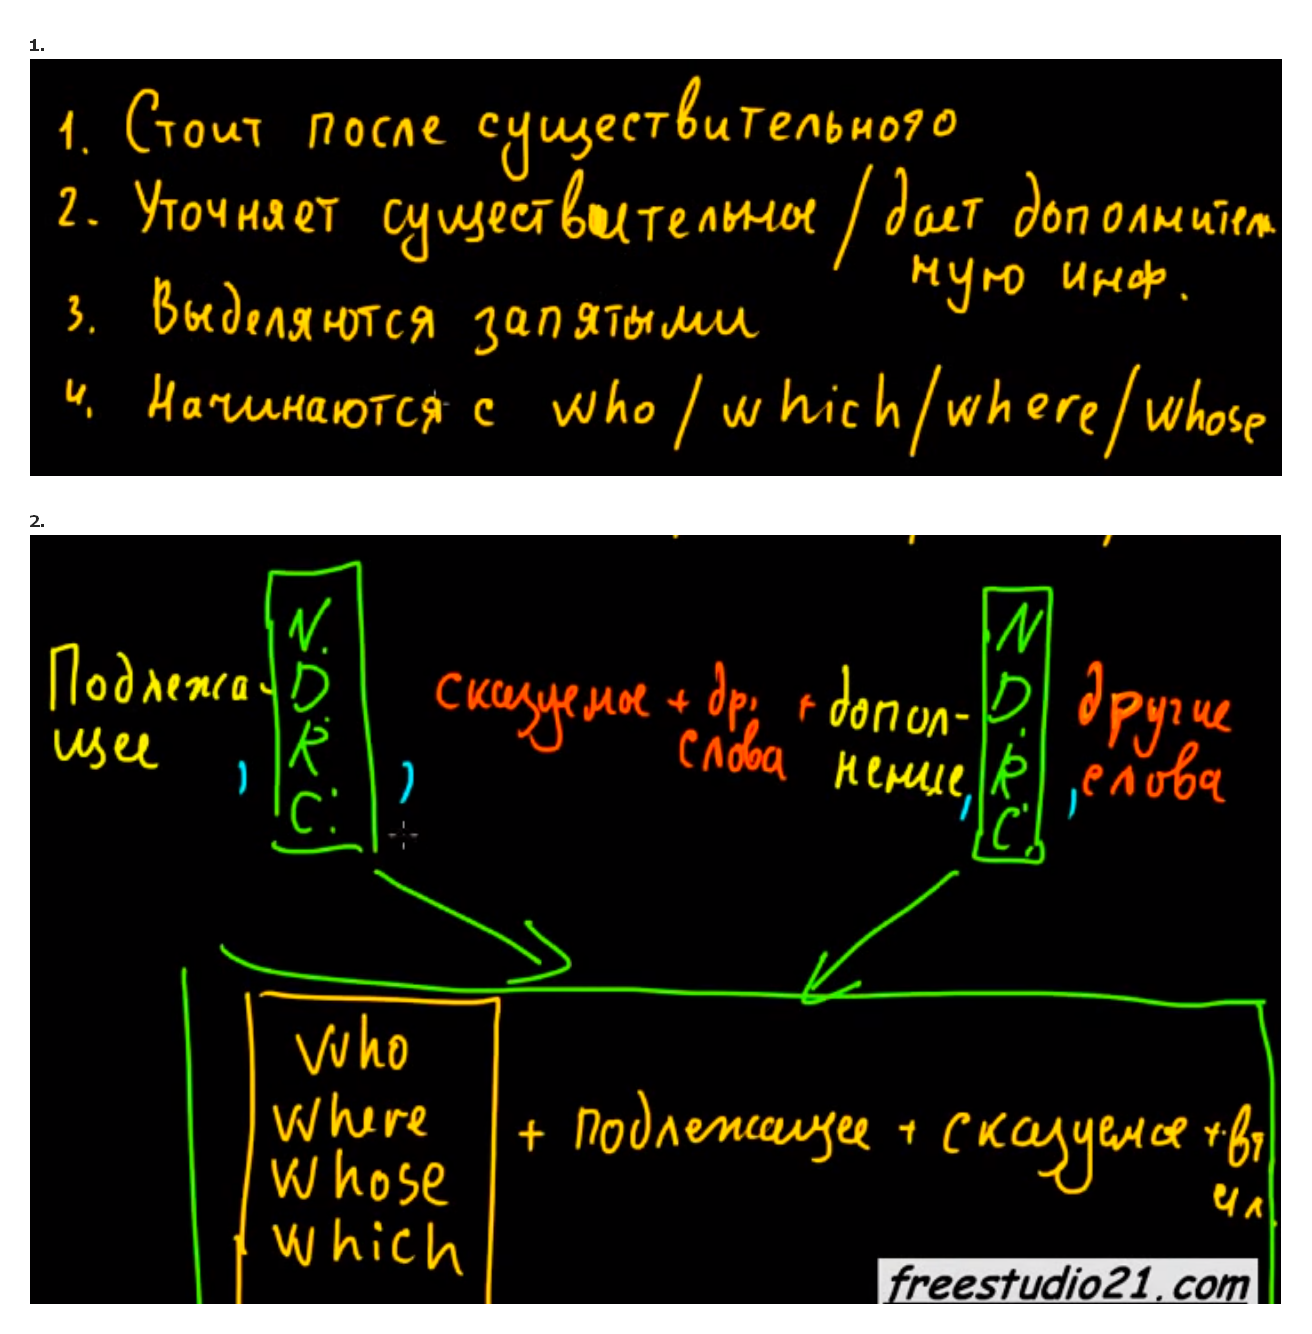 1.
1. Стоит после существительного
2. Уточняет существительное / дает дополнитель
ную инф.
3. Выделяются запятыми
4. Начинаются с who / which / where / whose
2.
Подлежа-
щее
,
N.
D.
R.
C.
,
сказуемое + др.
слова
+ допол-
нение
,
N
D.
R.
C.
,
другие
слова
Who
Where
Whose
Which
+ подлежащее + сказуемое + вт
чл
freestudio21.com